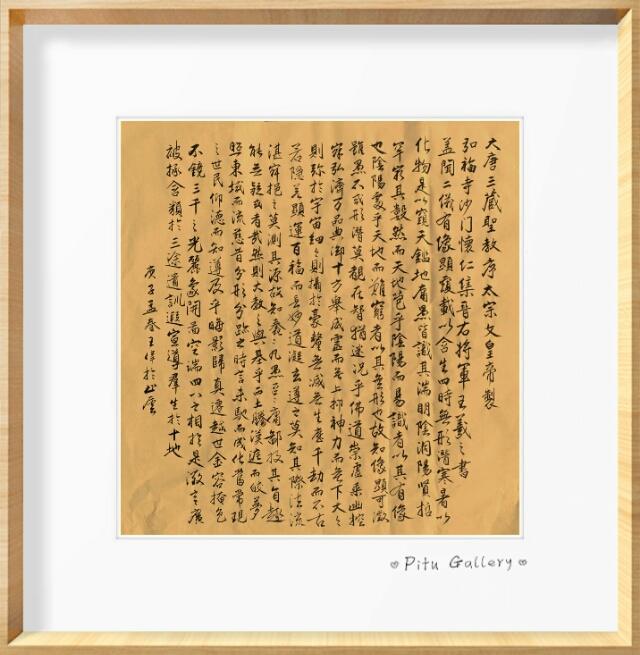 大唐三藏聖教序太宗文皇帝製
弘福寺沙门懷仁集晉右将軍王羲之書
盖聞二儀有像顯覆載以含生四時無形潛寒暑以
化物是以窺天鑑地庸愚皆識其端明陰洞陽賢哲
罕窮其數然而天地苞乎陰陽而易識者以其有像
也陰陽處乎天地而難窮者以其無形也故知像顯可徵
雖愚不或形潛莫覩在智猶迷况乎佛道崇虚乘幽控
寂弘濟万品典御十方舉威靈而無上抑神力而無下大之
則弥於宇宙細之則攝於豪釐無滅無生歷千劫而不古
若隱若顯運百福而長妙道凝玄遵之莫知其際法流
湛寂挹之莫測其源故知蠢々凡愚區々庸鄙投其旨趣
能無疑或者哉然則大教之興基乎西土騰漢庭而皎夢
照東域而流慈昔分形分跡之時言未馳而成化當常現
之世民仰德而知遵及乎晦影歸真遷越世金容掩色
不鏡三千之光麗象開啚空端四八之相於是微言廣
被拯含類於三途遺訓遐宣導羣生於十地
庚子孟春王於山雲
Pitu Gallery